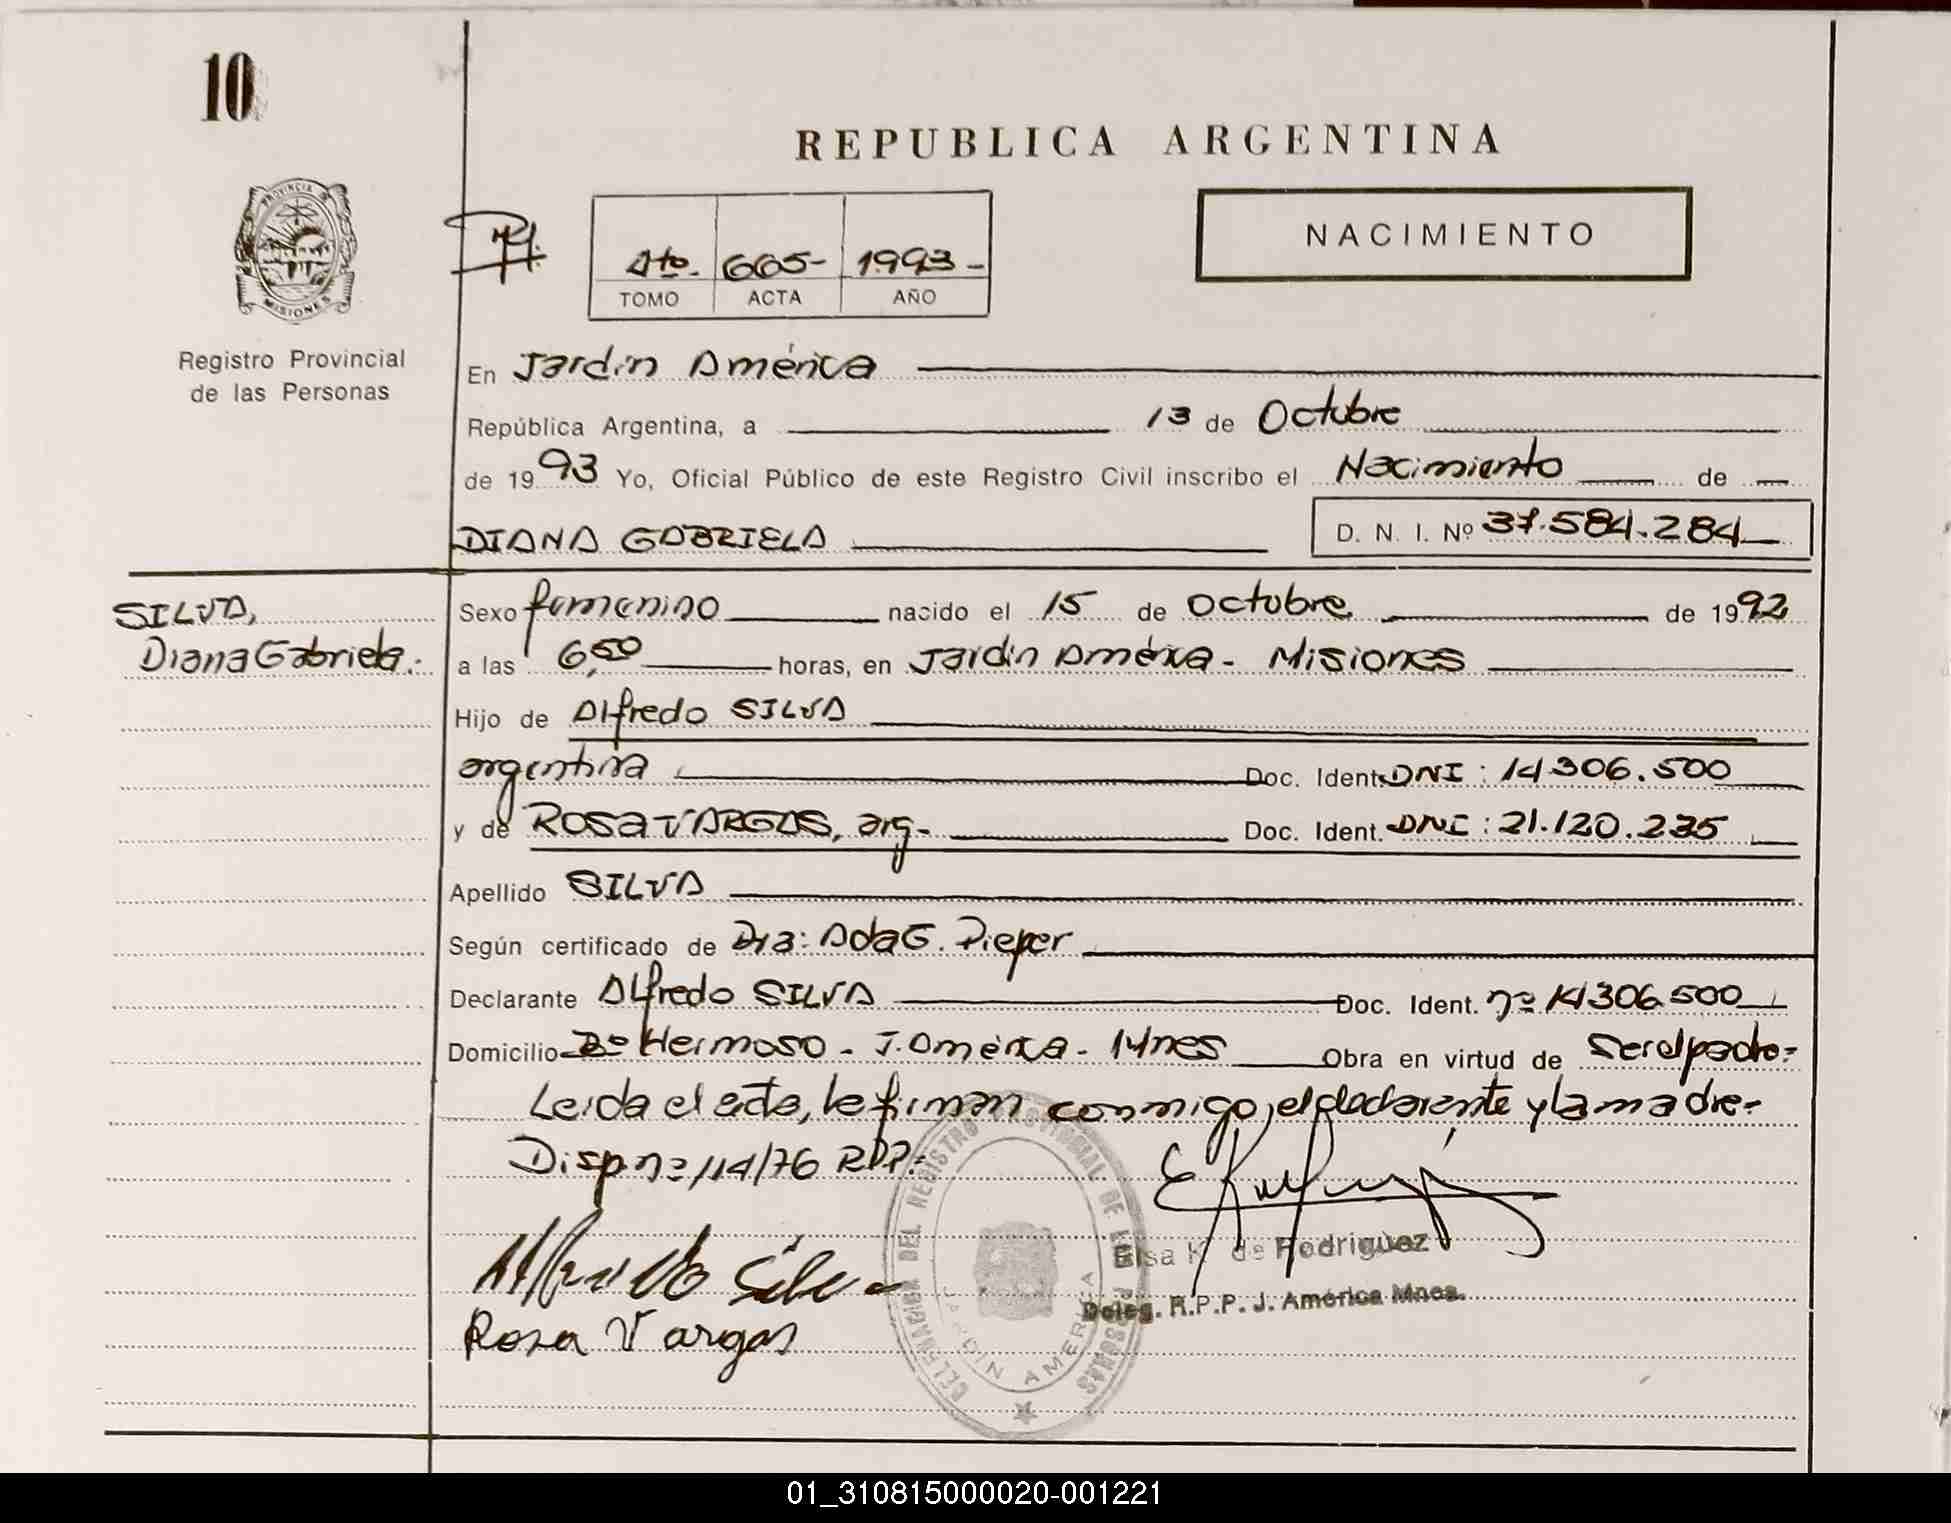 10
REPUBLICA ARGENTINA
PROVINCIA DE
MISIONES
Registro Provincial
de las Personas
4to. 665- 1993-
TOMO ACTA AÑO
NACIMIENTO
En Jardín América
República Argentina, a 13 de Octubre
de 1993 Yo, Oficial Público de este Registro Civil inscribo el Nacimiento de
DIANA GABRIELA D. N. I. Nº 37.584.284
SILVA,
Diana Gabriela.-
Sexo femenino nacido el 15 de octubre de 1992
a las 6,50 horas, en Jardín América - Misiones
Hijo de Alfredo SILVA
argentina Doc. Ident. DNI: 14306.500
y de ROSA VARGAS, arg- Doc. Ident. DNI: 21.120.235
Apellido SILVA
Según certificado de Dra: Ada G. Pieper
Declarante Alfredo SILVA Doc. Ident. nº 14306.500
Domicilio Bº Hermoso - J. América - Mnes Obra en virtud de ser el padre-
Leida el acta, le firman conmigo, el declarente y la madre-
Disp nº 114/76 RPP.-
Alfredo Silva
Rosa Vargas
Elsa K. de Rodriguez
Deleg. R.P.P. J. América Mnes.
DELEGACION DEL REGISTRO PROVINCIAL DE LAS PERSONAS
JARDIN AMERICA
01_310815000020-001221